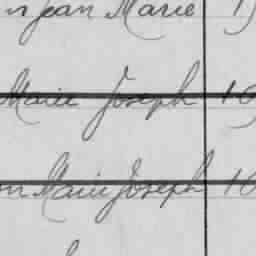 Jean Marie
Marie Joseph 10
Marie Joseph 10